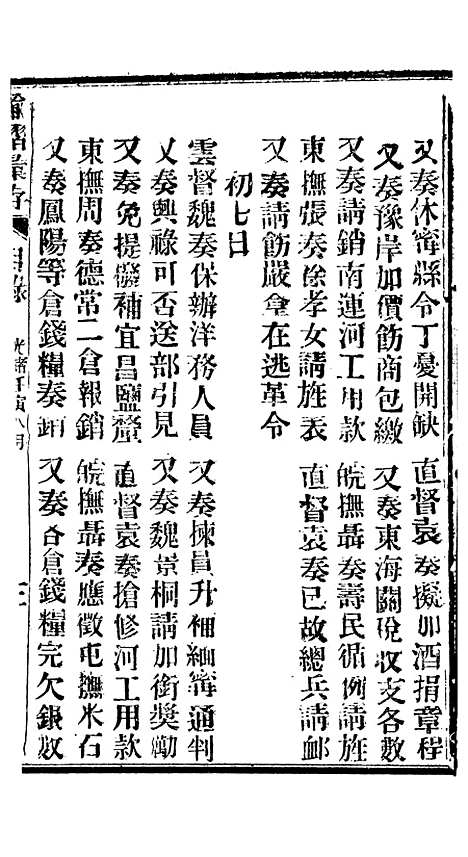 又奏休甯縣令丁憂開缺　直督袁奏擬加酒捐章程
又奏豫岸加價飭商包繳　又奏東海關稅收支各數
又奏請銷南運河工用款　皖撫聶奏壽民循例請旌
東撫張奏徐孝女請旌表　直督袁奏已故總兵請卹
又奏請飭嚴拿在逃革令
初七日
雲督魏奏保辦洋務人員　又奏揀員升補緬甯通判
又奏興祿可否送部引見　又奏魏景桐請加銜獎勵
又奏免提撥補宜昌鹽釐　直督袁奏搶修河工用款
東撫周奏德常二倉報銷　皖撫聶奏應徵屯撫米石
又奏鳳陽等倉錢糧奏銷　又奏各倉錢糧完欠銀數
諭摺彙存　目錄　光緒壬寅八月　三